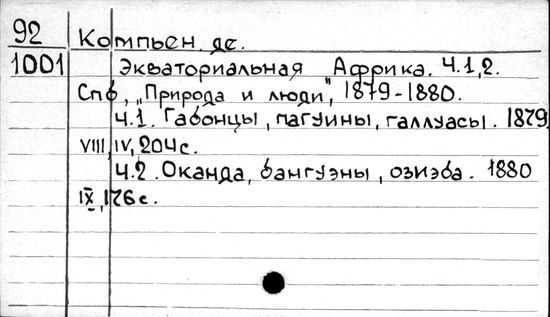 92 Компьен де.
1001 Экваториальная Африка. Ч.1,2.
Спб, „Природа и люди", 1879-1880.
Ч.1. Габонцы, пагуины, галлуасы. 1879
VIII, IV, 204 с.
Ч.2. Оканда, бангуэны, озиэба. 1880
IX, 176 с.